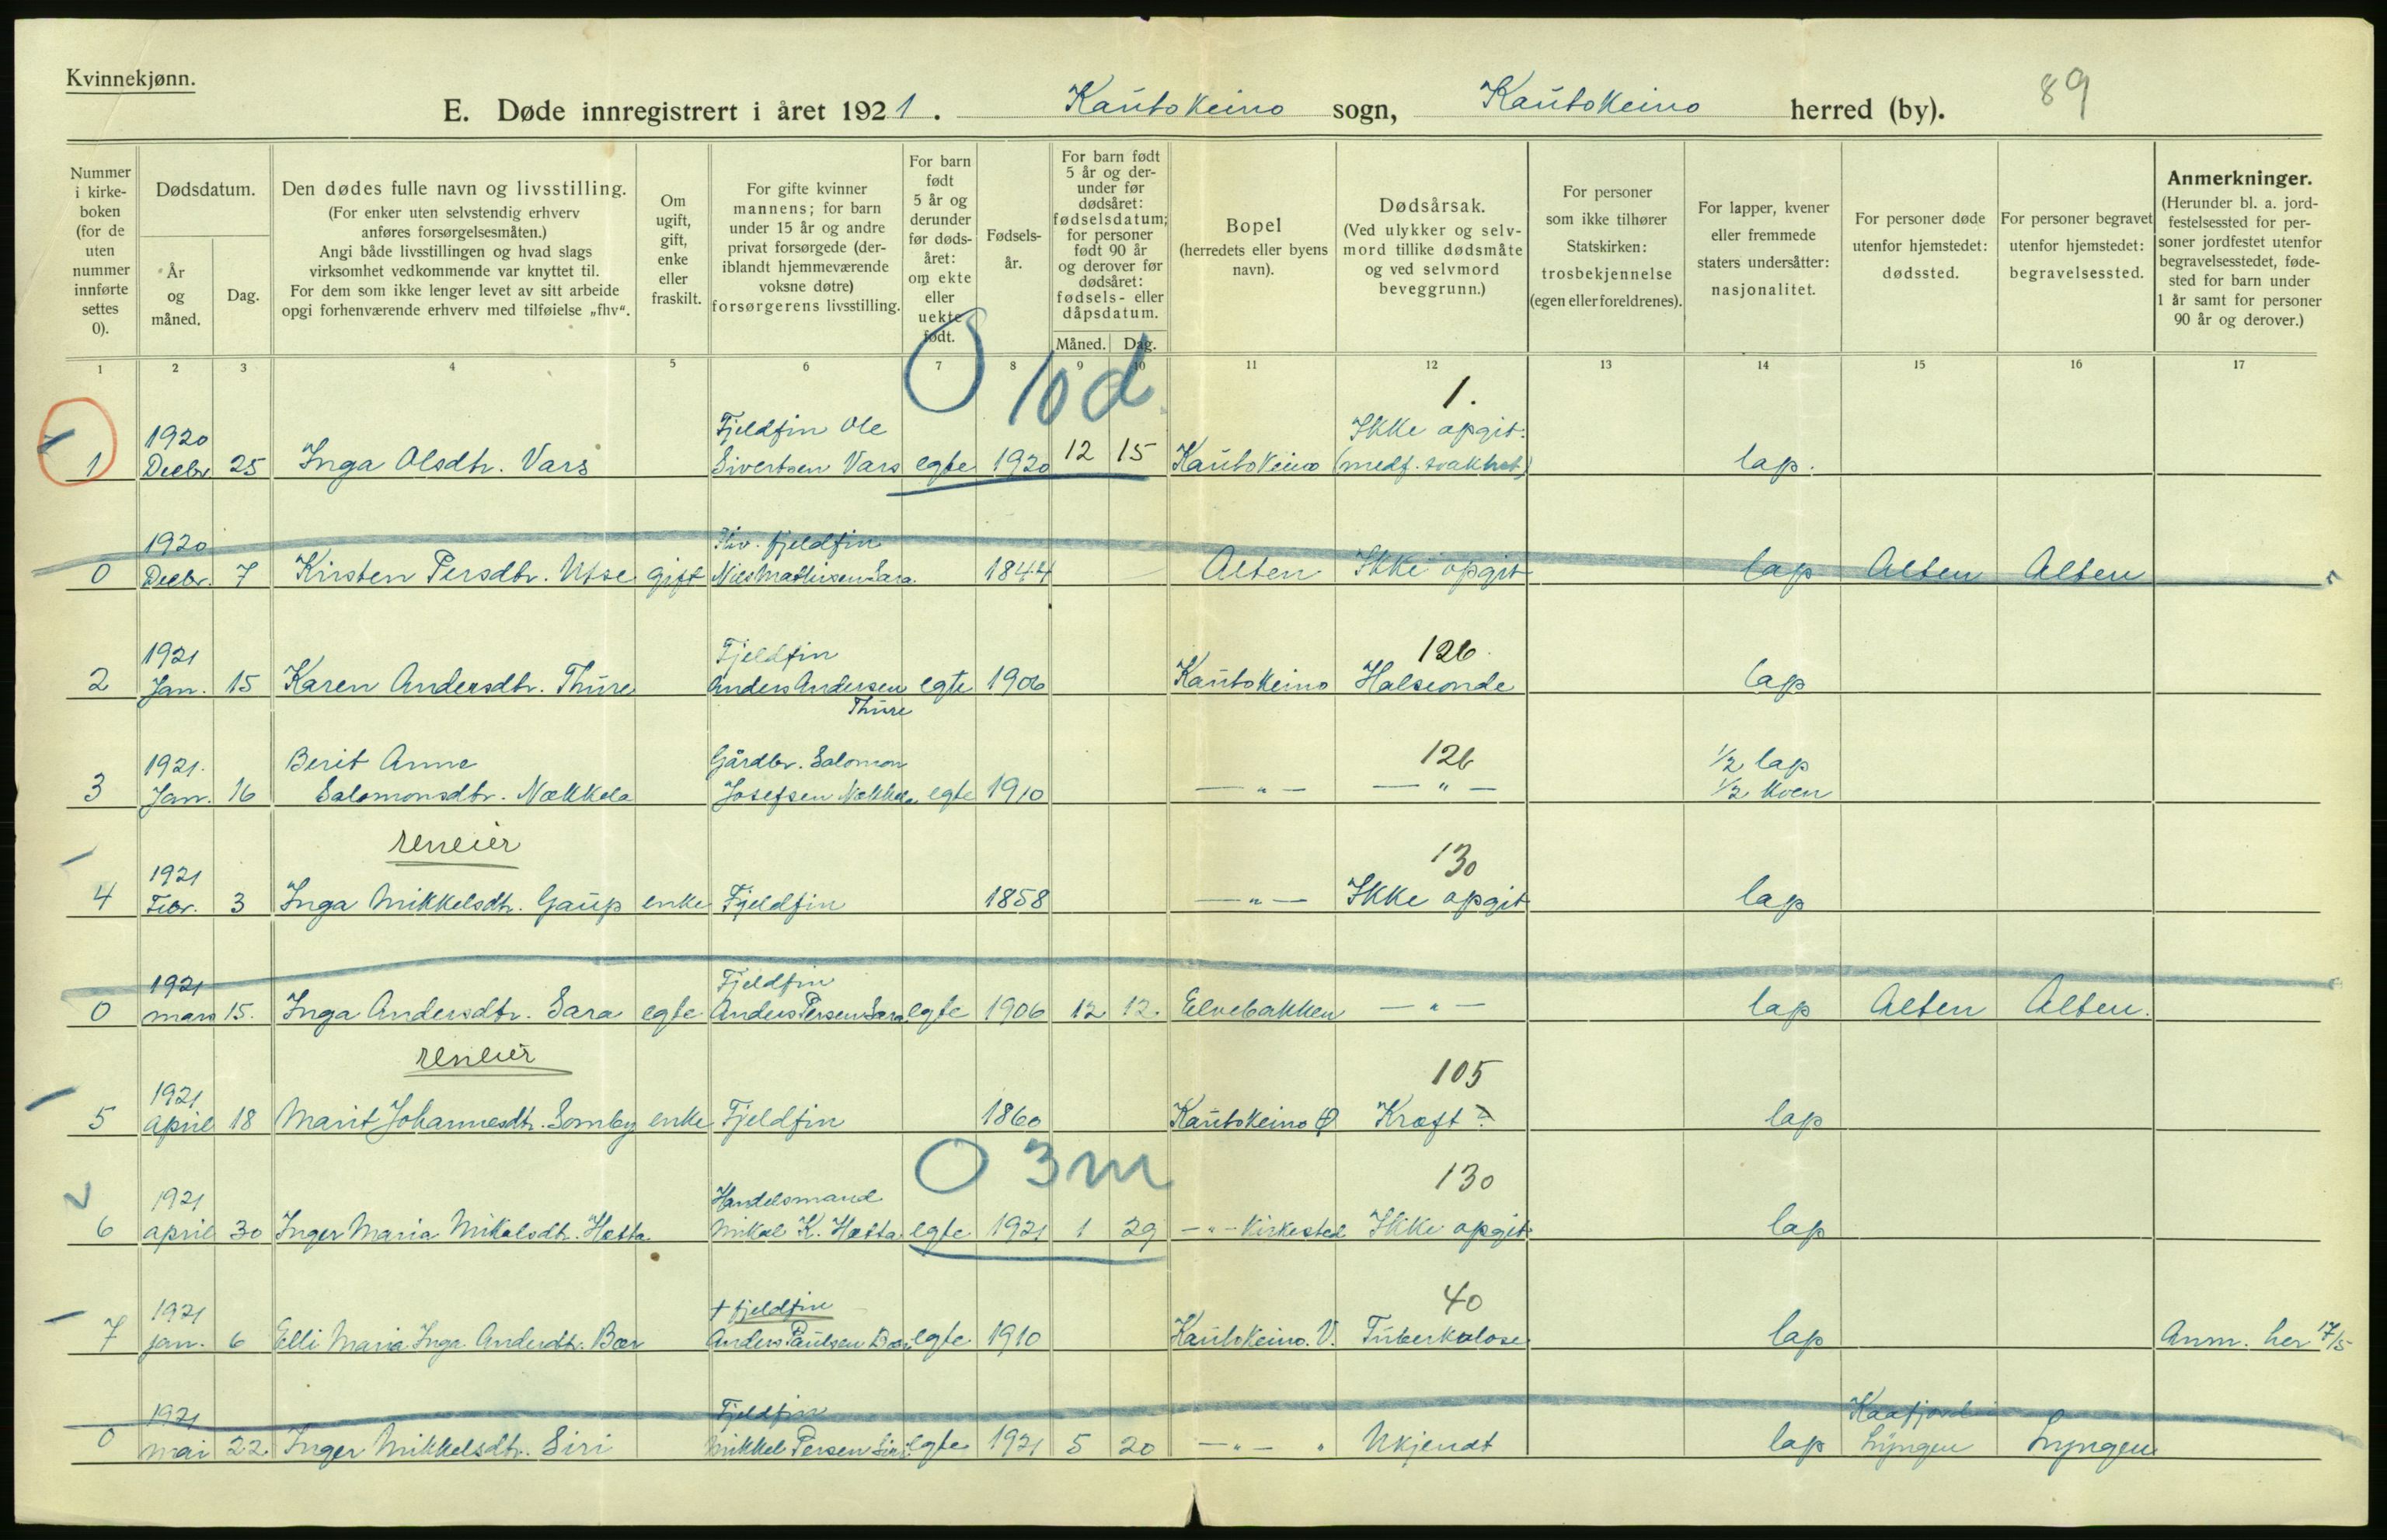 Kvinnekjønn.
E. Døde innregistrert i året 1921. Kautokeino sogn, Kautokeino herred (by). 89
Nummer i kirke-boken (for de uten nummer innførte settes 0).
Dødsdatum.
År og måned.
Dag.
Den dødes fulle navn og livsstilling.
(For enker uten selvstendig erhverv anføres forsørgelsesmåten.)
Angi både livsstillingen og hvad slags virksomhet vedkommende var knyttet til.
For dem som ikke lenger levet av sitt arbeide opgi forhenværende erhverv med tilføielse „fhv“.
Om ugift, gift, enke eller fraskilt.
For gifte kvinner mannens; for barn under 15 år og andre privat forsørgede (deriblandt hjemmeværende voksne døtre) forsørgerens livsstilling.
For barn født 5 år og derunder før dødsåret: om ekte eller uekte født.
Fødselsår.
For barn født 5 år og derunder før dødsåret: fødselsdatum; for personer født 90 år og derover før dødsåret: fødsels- eller dåpsdatum.
Måned. Dag.
Bopel (herredets eller byens navn).
Dødsårsak.
(Ved ulykker og selvmord tillike dødsmåte og ved selvmord beveggrunn.)
For personer som ikke tilhører Statskirken: trosbekjennelse (egen eller foreldrenes).
For lapper, kvener eller fremmede staters undersåtter: nasjonalitet.
For personer døde utenfor hjemstedet: dødssted.
For personer begravet utenfor hjemstedet: begravelsessted.
Anmerkninger.
(Herunder bl. a. jordfestelsessted for personer jordfestet utenfor begravelsesstedet, fødested for barn under 1 år samt for personer 90 år og derover.)
1 2 3 4 5 6 7 8 9 10 11 12 13 14 15 16 17
0 10 d 1.
1920 Fjeldfin Ole Ikke opgit:
1 Decbr. 25 Inga Olsdtr. Vars Sivertsen Vars egte 1920 12 15 Kautokeino (medf. svakhet) lap.
1920 Fhv. fjeldfin
0 Decbr. 7 Kirsten Persdtr. Utse gift Nils Mathisen Sara. 1844 Alten Ikke opgit lap Alten Alten
1921 Fjeldfin 126.
2 Jan. 15 Karen Andersdtr. Thure Anders Andersen egte 1906 Kautokeino Halseonde lap
Thure
1921. Berit Anne Gårdbr. Salomon 126 1/2 lap
3 Jan. 16 Salomonsdtr. Nækkela Josefsen Nækkela egte 1910 — „ — — „ — 1/2 kven
reneier 130
1921
4 Febr. 3 Inga Mikkelsdtr. Gaup enke Fjeldfin 1858 — „ — Ikke opgit lap
1921 Fjeldfin
0 mars 15. Inga Andersdtr. Sara egte Anders Persen Sara egte 1906 12 12. Elvebakken — „ — lap Alten Alten.
reneier 105
1921
5 april 18 Marit Johannesdtr. Somby enke Fjeldfin 1860 Kautokeino Ø Kræft ? lap
0 3 m 130
1921 Handelsmand
6 april 30 Inger Maria Mikalsdtr. Hætta Mikal K. Hætta egte 1921 1 29 — „ — Kirkested Ikke opgit lap
1921 † fjeldfin 40
7 jan. 6 Elli Maria Inga Andersdtr. Bær Anders Paulsen Bær egte 1910 Kautokeino. V. Tuberkulose lap Anm. her 17/5
1921 Fjeldfin Kaafjord
0 mai 22 Inger Mikkelsdtr. Siri Mikkel Persen Siri egte 1921 5 20 — „ — „ Ukjendt lap Lyngen Lyngen